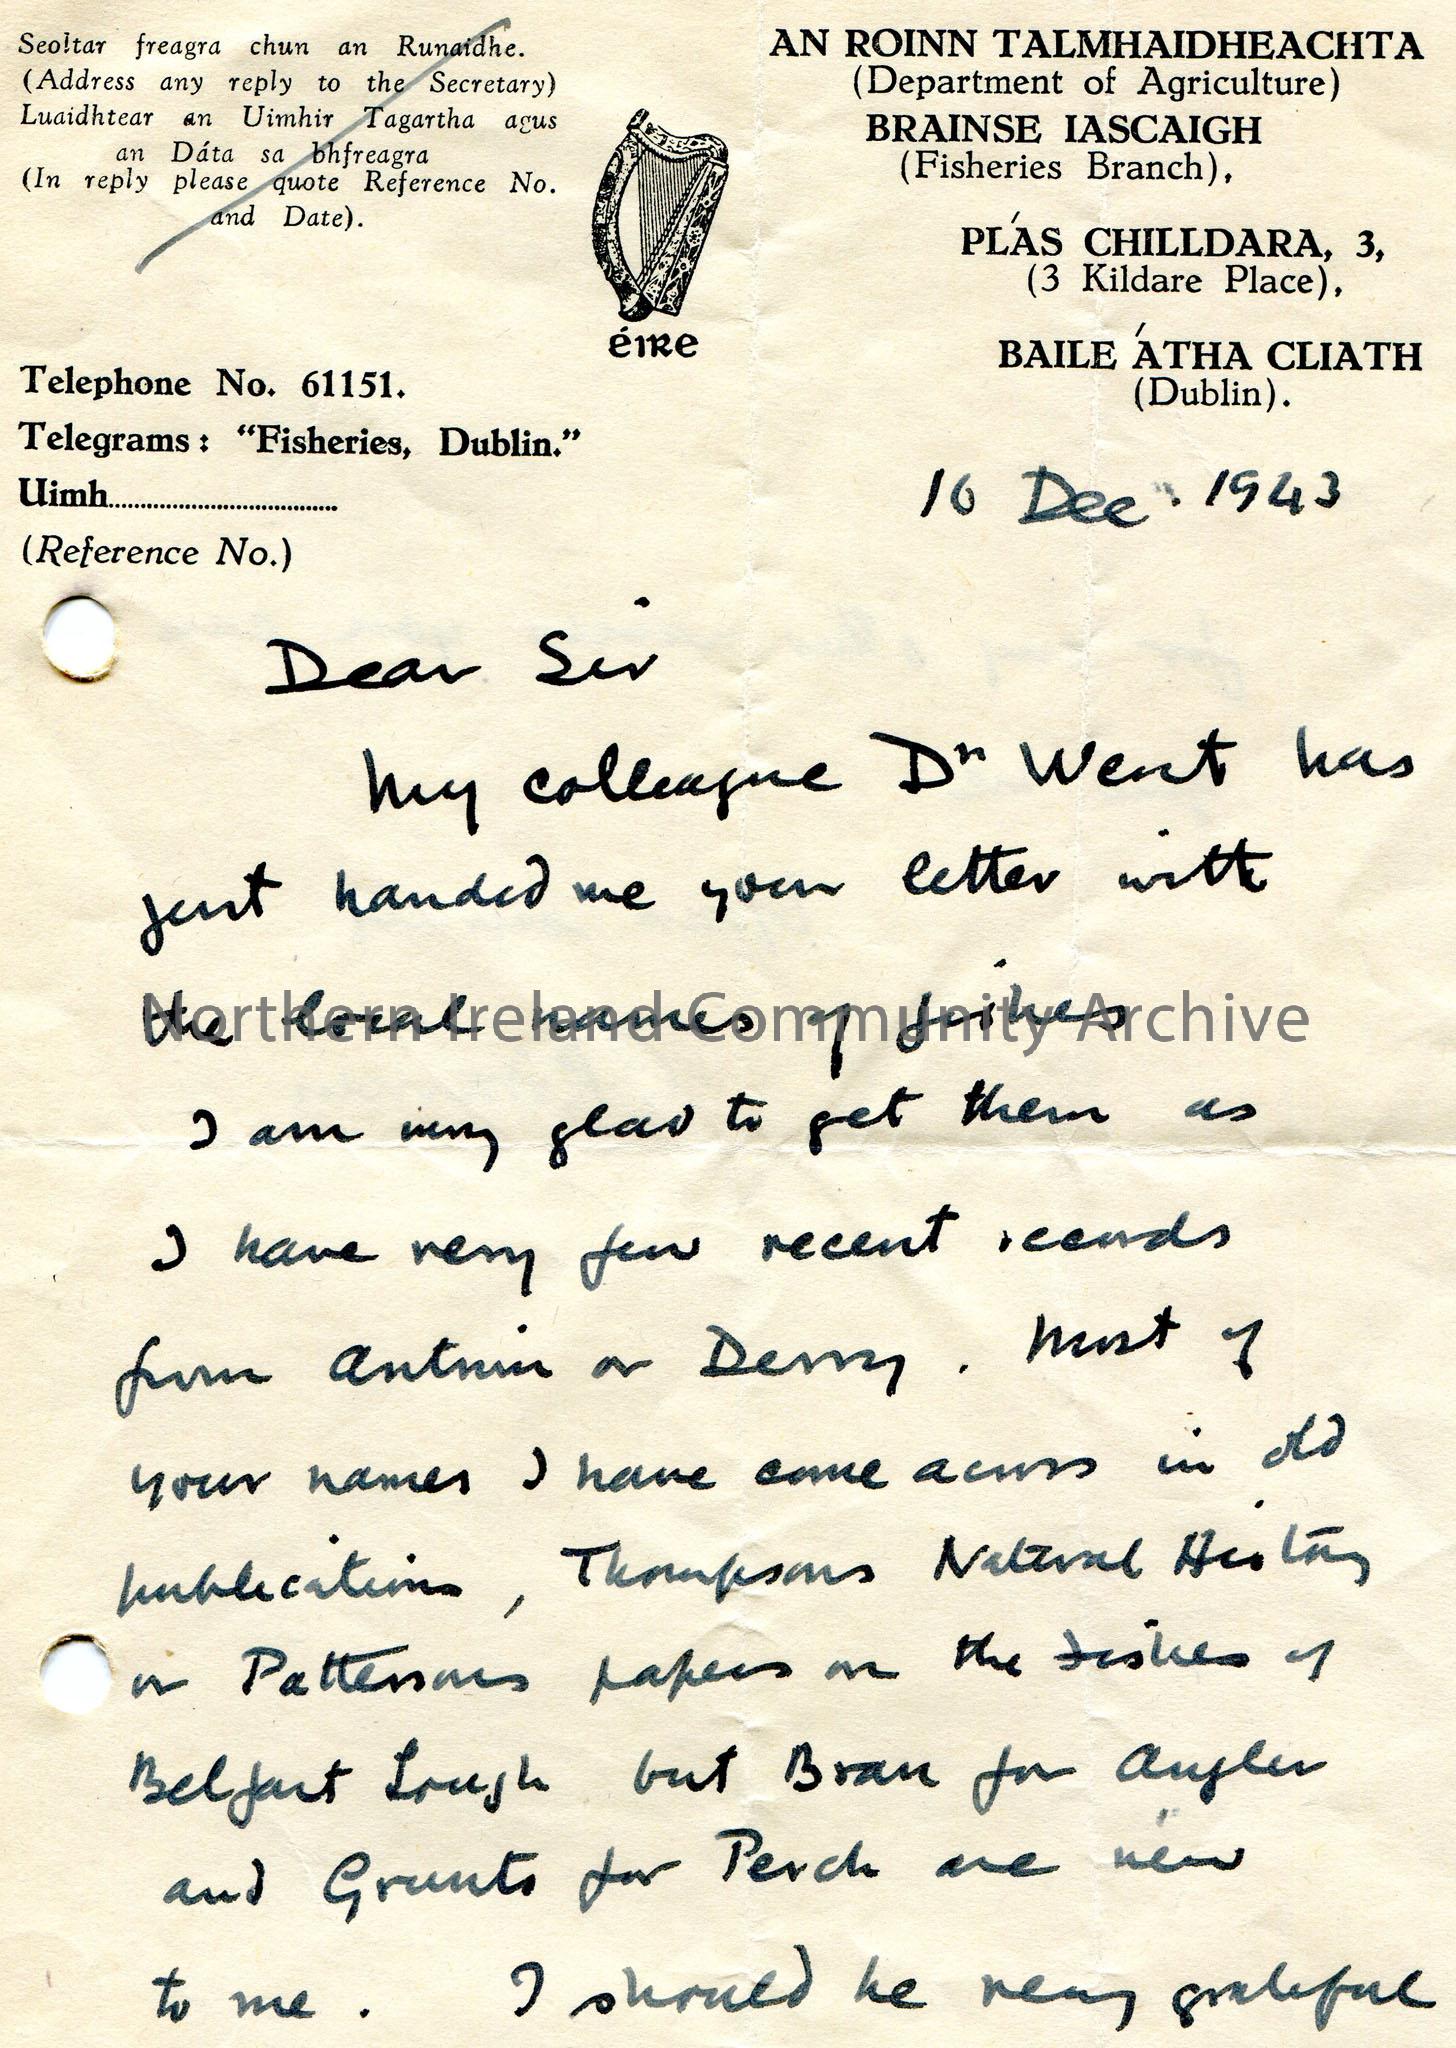 Seoltar freagra chun an Runaidhe.
(Address any reply to the Secretary)
Luaidhtear an Uimhir Tagartha agus
an Dáta sa bhfreagra
(In reply please quote Reference No.
and Date).
éire
AN ROINN TALMHAIDHEACHTA
(Department of Agriculture)
BRAINSE IASCAIGH
(Fisheries Branch),
PLÁS CHILLDARA, 3,
(3 Kildare Place),
BAILE ÁTHA CLIATH
(Dublin).
Telephone No. 61151.
Telegrams: "Fisheries, Dublin."
Uimh..................................
(Reference No.)
16 Dec. 1943
Dear Sir
My colleague Dr Went has
just handed me your letter with
the local names of fishes
Northern Ireland Community Archive
I am very glad to get them as
I have very few recent records
from Antrim or Derry. Most of
your names I have come across in old
publications, Thompsons Natural History
or Pattersons papers on the Fishes of
Belfast Lough but Bran for Angler
and Grunts for Perch are new
to me. I should be very grateful